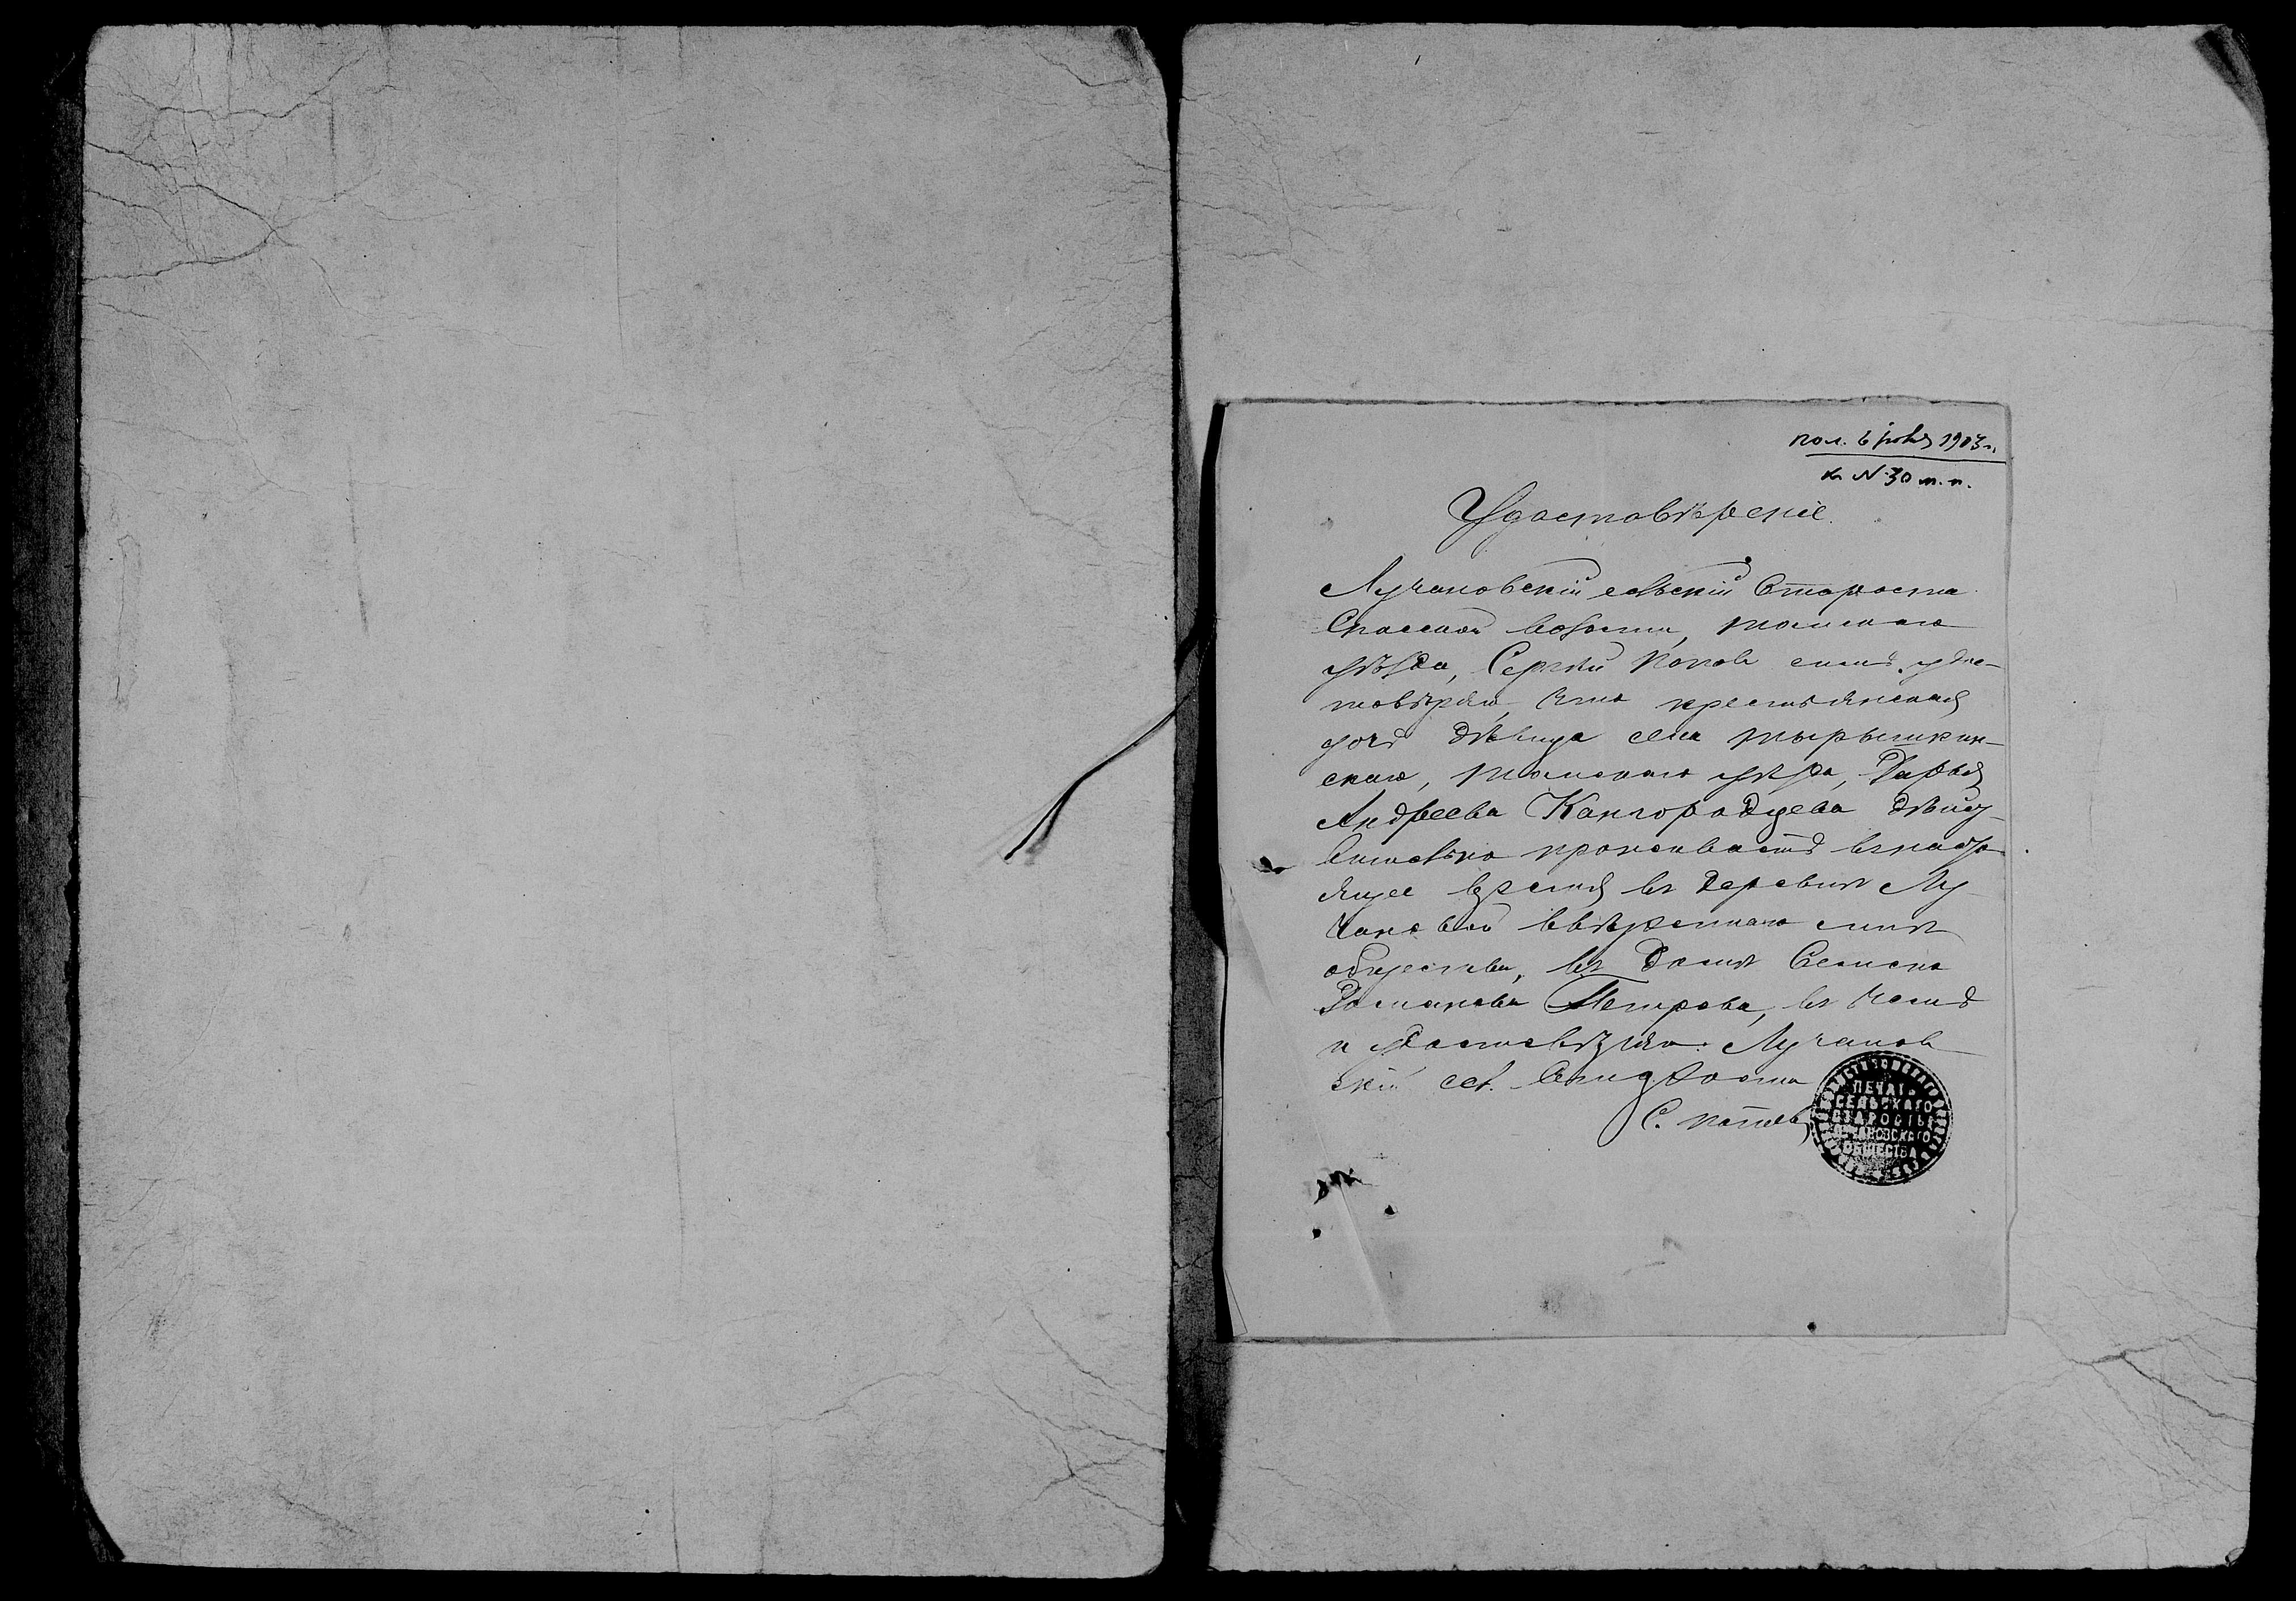 пол. 6 іюня 1903 г.
к N 30 т. п.
Удостовѣреніе.
Лучановскій сельскій Староста
Спасской волости, Томскаго
уѣзда, Сергѣй Попов симъ удос-
товѣряю, что крестьянская
дочь дѣвица села
скаго, Томскаго уѣзда, Дарья
Андреева Кайгородцева дѣйст-
вительно проживаетъ в насто
ящее время въ деревнѣ Лу-
чановой ввѣреннаго мнѣ
общества, въ домѣ Семена
Романова Петрова, въ чемъ
и удостовѣряю. Лучанов
скій сел. Староста
С. Попов
ПЕЧАТЬ
СЕЛЬСКАГО
СТАРОСТЫ
ЛУЧАНОВСКАГО
ОБЩЕСТВА